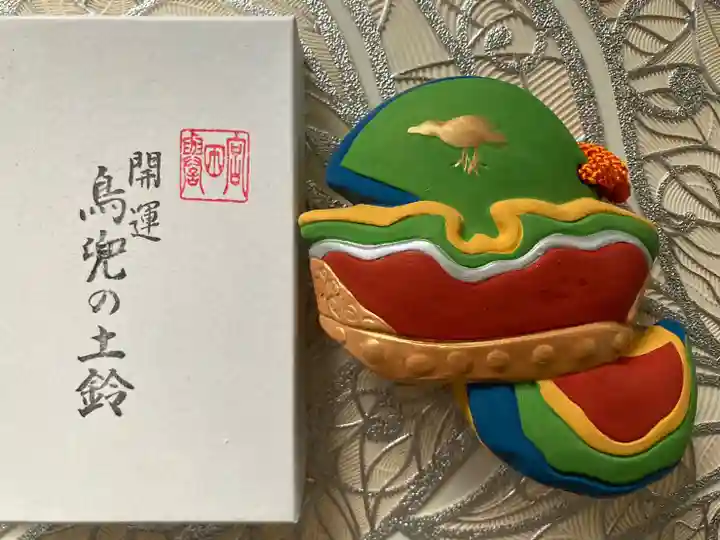 開運
鳥兜の土鈴